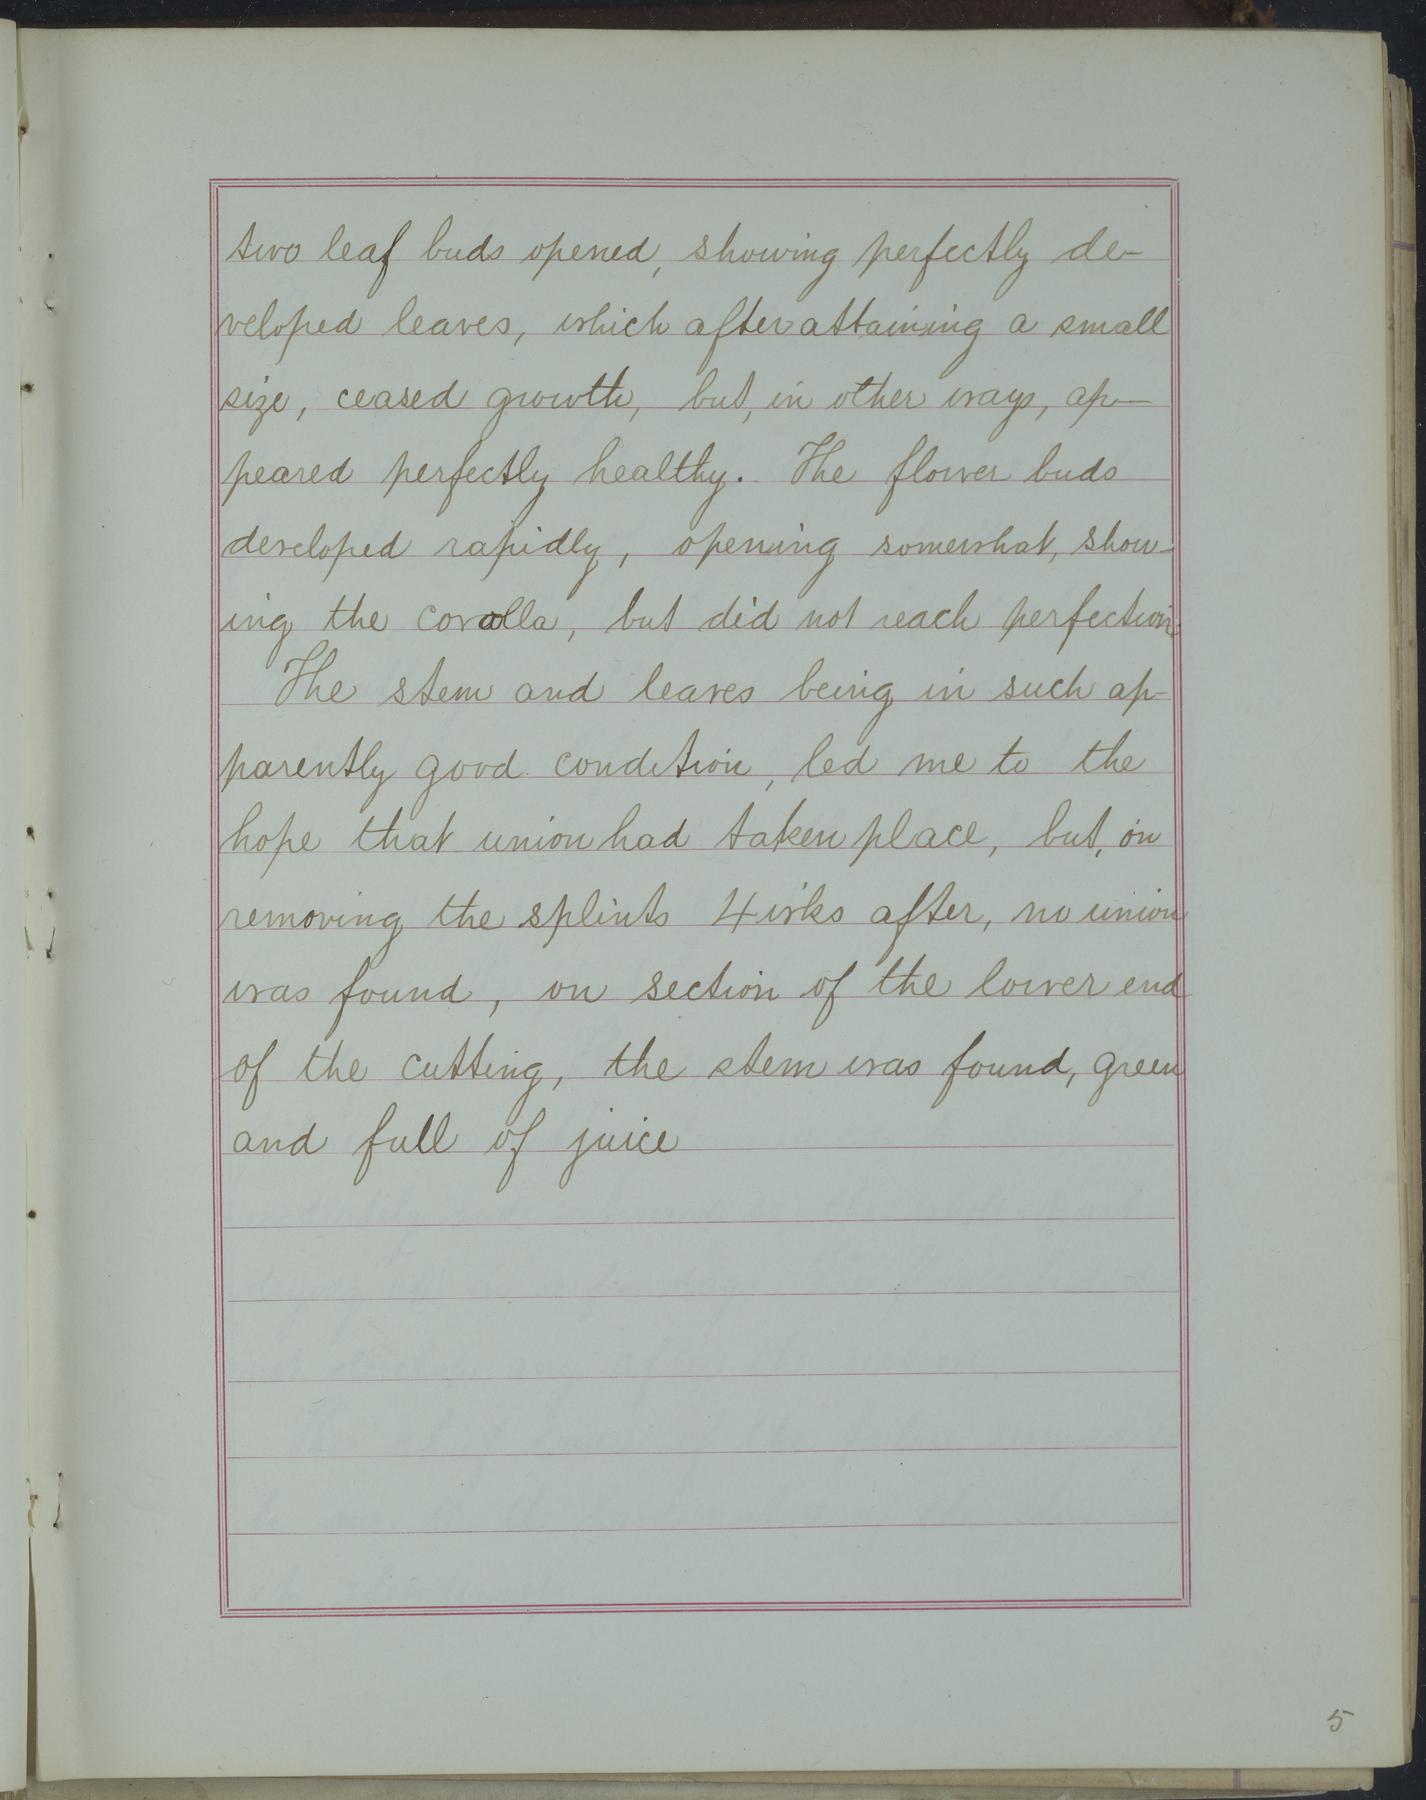 two leaf buds opened, showing perfectly de-
veloped leaves, which after attaining a small
size, ceased growth, but, in other ways, ap-
peared perfectly healthy. The flower buds
developed rapidly, opening somewhat, show-
ing the coralla, but did not reach perfection.
The stem and leaves being in such ap-
parently good condition, led me to the
hope that union had taken place, but, on
removing the splints 4 wks after, no union
was found, on section of the lower end
of the cutting, the stem was found, green
and full of juice
5